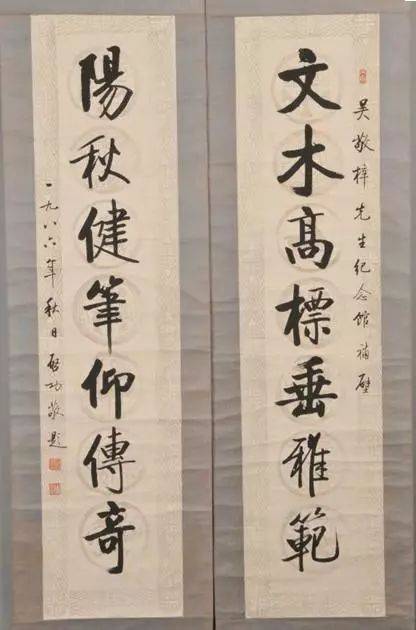 吴敬梓先生纪念馆補壁
文木高標垂雅範
陽秋健筆仰傳奇
一九八六年秋日啓功敬题